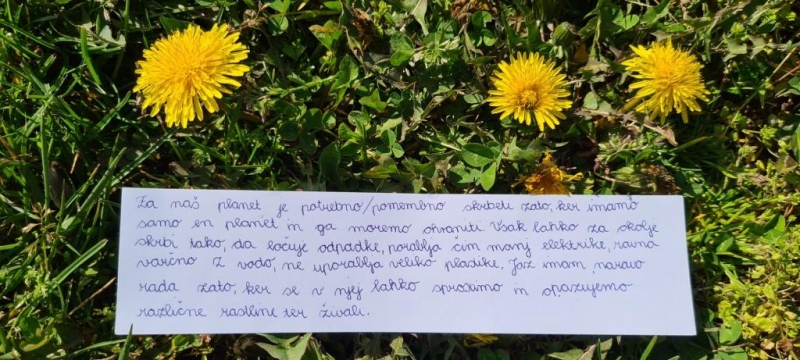 Za naš planet je potrebno/pomembno skrbeti zato, ker imamo
samo en planet in ga moremo ohraniti. Vsak lahko za okolje
skrbi tako, da ločuje odpadke, porablja čim manj elektrike, ravna
varčno z vodo, ne uporablja veliko plastike. Jaz imam naravo
rada zato, ker se v njej lahko sprostimo in opazujemo
različne rastline ter živali.